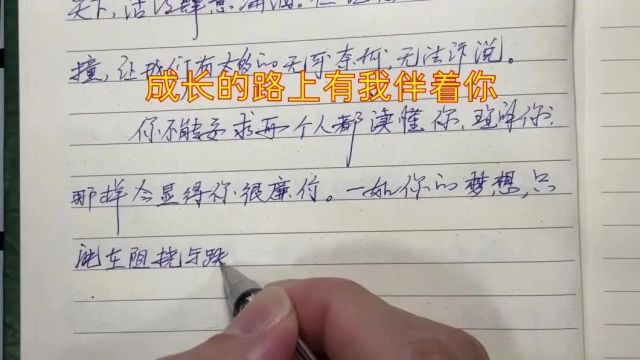 天下，活得肆意潇洒。
撞，让我们有太多的无可奈何，无法评说。
成长的路上有我伴着你
你不能要求每个人都读懂你，理解你，
那样会显得你很廉价。一如你的梦想，只
能在阻挠与跌